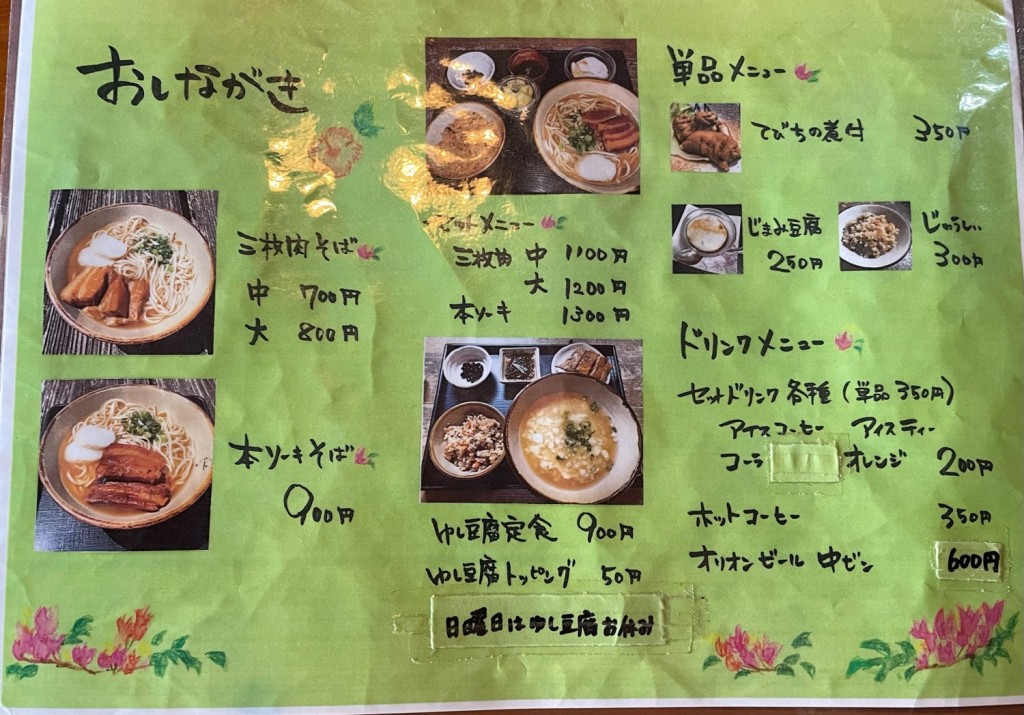 おしながき
三枚肉そば
中 700円
大 800円
本ソーキそば
900円
セットメニュー
三枚肉 中 1100円
大 1200円
本ソーキ 1300円
ゆし豆腐定食 900円
ゆし豆腐トッピング 50円
日曜日はゆし豆腐お休み
単品メニュー
てびちの煮付 350円
じまみ豆腐
250円
じゅうしぃ
300円
ドリンクメニュー
セットドリンク各種(単品350円)
アイスコーヒー アイスティー
コーラ オレンジ 200円
ホットコーヒー 350円
オリオンビール 中ビン 600円